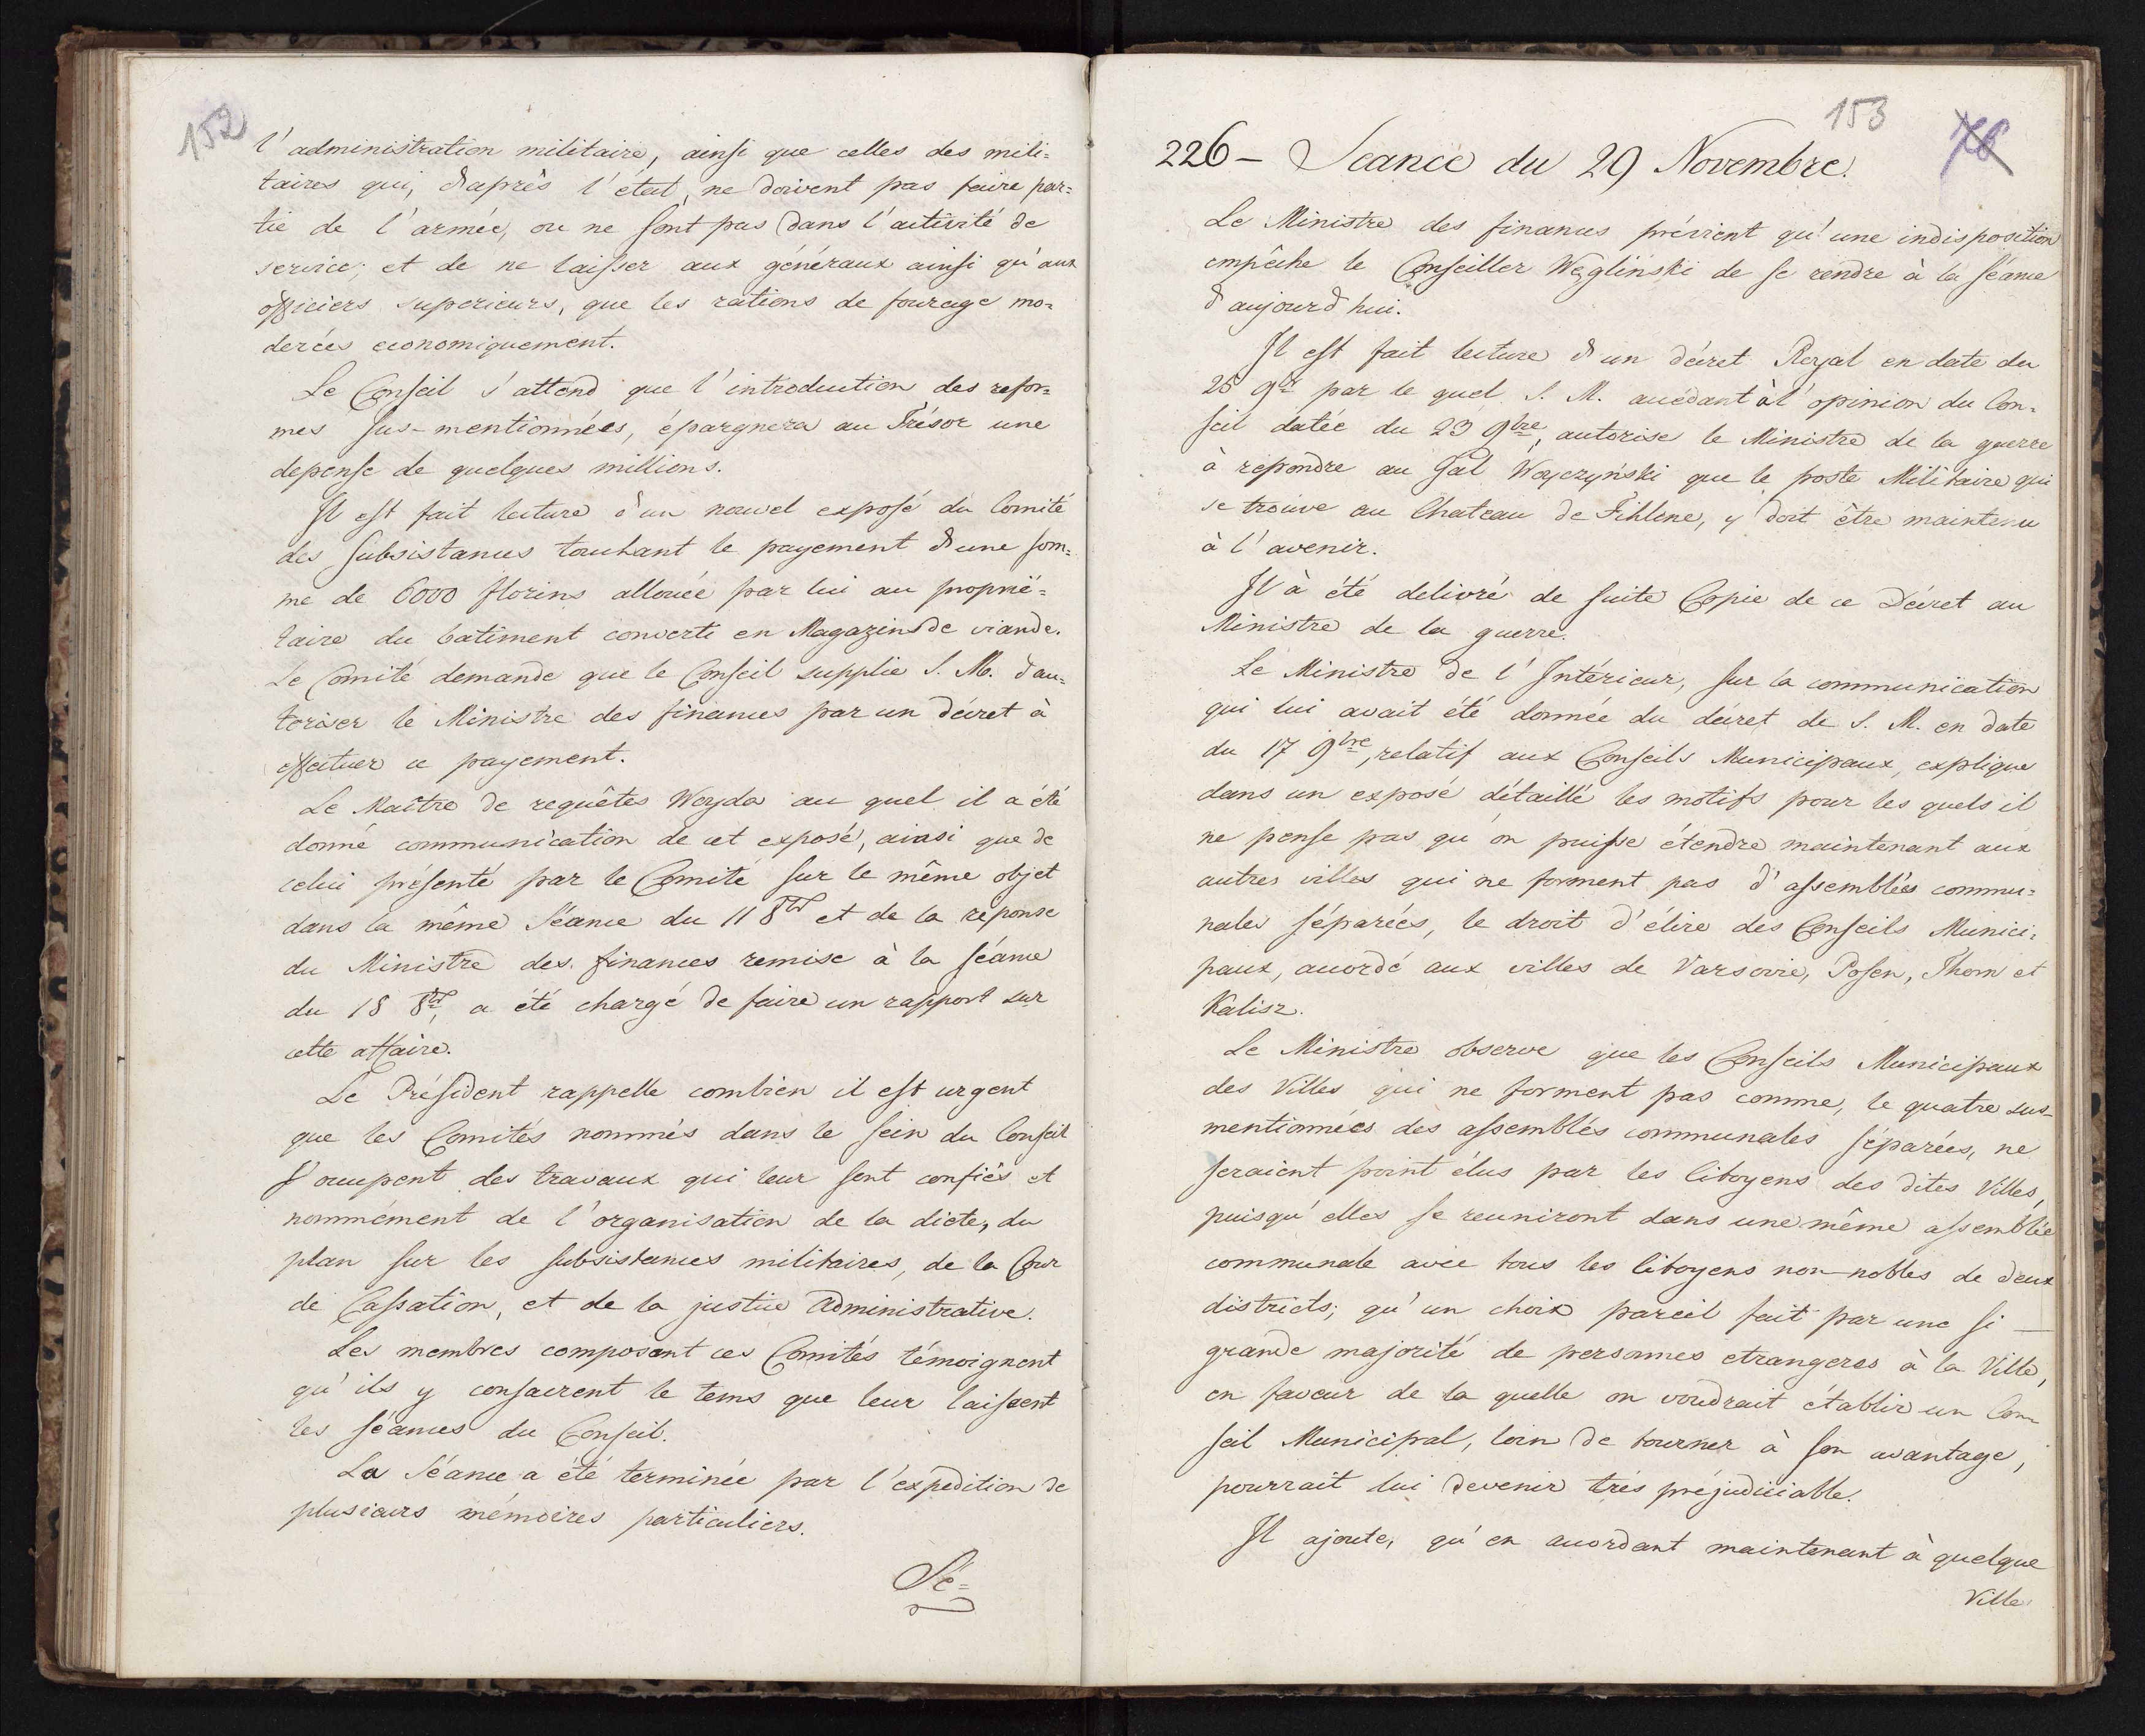 152
l'administration militaire, ainsi que celles des mili=
taires qui, d'après l'état, ne doivent pas faire par=
tie de l'armée, ou ne sont pas dans l'activité de
service; et de ne laisser aux généraux ainsi qu'aux
officiers superieurs, que les rations de fourage mo=
derées economiquement.
Le Conseil s'attend que l'introduction des refor=
mes sus-mentionnées, épargnera au Trésor une
depense de quelques millions.
Il est fait lecture d'un nouvel exposé du Comité
des subsistances touchant le payement d'une som=
me de 6000 florins allouée par lui au proprié=
taire du batiment converti en Magazins de viande.
Le Comité demande que le Conseil supplie S. M. d'au=
toriser le Ministre des finances par un décret à
effectuer ce payement.
Le Maître de requêtes Woyda au quel il a été
donné communication de cet exposé, ainsi que de
celui présenté par le Comité sur le même objet
dans la même Séance du 11 8br et de la réponse
du Ministre des finances remise à la séance
du 18 8br, a été chargé de faire un rapport sur
cette affaire.
Le Président rappelle combien il est urgent
que les Comités nommés dans le sein du Conseil
s'occupent des travaux qui leur sont confiés et
nommément de l'organisation de la diete, du
plan sur les subsistances militaires, de la Cour
de Cassation, et de la justice administrative.
Les membres composant ces Comités témoignent
qu'ils y consacrent le tems que leur laissent
les séances du Conseil.
La Séance a été terminée par l'expédition de
plusieurs mémoires particuliers.
Sé=
153
226 - Seance du 29 Novembre.
Le Ministre des finances prévient qu'une indisposition
empêche le Conseiller Węgliński de se rendre à la séance
d'aujourd'hui.
Il est fait lecture d'un décret Royal en date du
25 9br par le quel S. M. accédant à l'opinion du Con=
seil datée du 23 9bre, autorise le Ministre de la guerre
à répondre au Gal Woyczyński que le poste Militaire qui
se trouve au Chateau de Fihlene, y doit être maintenu
à l'avenir.
Il à été delivré de suite Copie de ce Décret au
Ministre de la guerre.
Le Ministre de l'Intérieur, sur la communication
qui lui avait été donnée du décret de S. M. en date
du 17 9bre, relatif aux Conseils Municipaux, explique
dans un exposé détaillé les motifs pour les quels il
ne pense pas qu'on puisse étendre maintenant aux
autres villes qui ne forment pas d'assemblées commu=
nales séparées, le droit d'élire des Conseils Munici=
paux, accordé aux villes de Varsovie, Posen, Thorn et
Kalisz.
Le Ministre observe que les Conseils Municipaux
des Villes qui ne forment pas comme, le quatre sus-
mentionnées des assemblés communales séparées, ne
seraient point élus par les Citoyens des dites Villes,
puisqu'elles se reuniront dans une même assemblée
communale avec tous les Citoyens non-nobles de deux
districts; qu'un choix pareil fait par une si
grande majorité de personnes etrangeres à la Ville,
en faveur de la quelle on voudrait établir un Con=
seil Municipal, loin de tourner à son avantage,
pourrait lui devenir trés préjudiciable.
Il ajoute, qu'en accordant maintenant à quelque
Ville